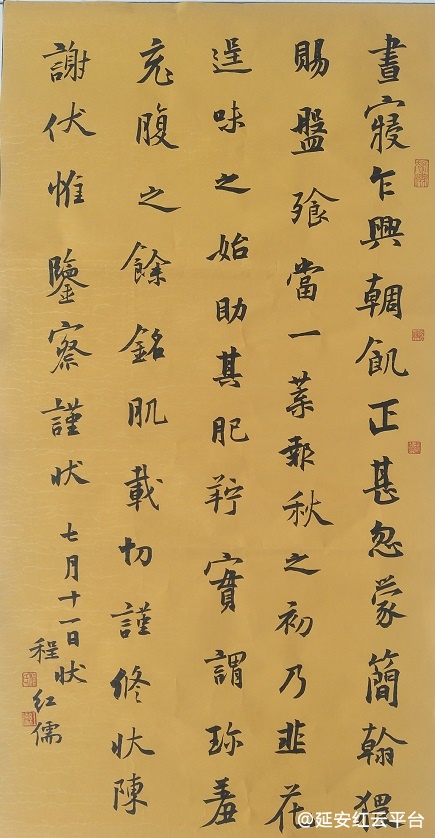 晝寢乍興輖飢正甚忽蒙簡翰猥
賜盤飧當一葉報秋之初乃韭花
逞味之始助其肥羜實謂珍羞
充腹之餘銘肌載切謹修狀陳
謝伏惟鑒察謹狀 七月十一日狀
程紅儒
@延安红云平台